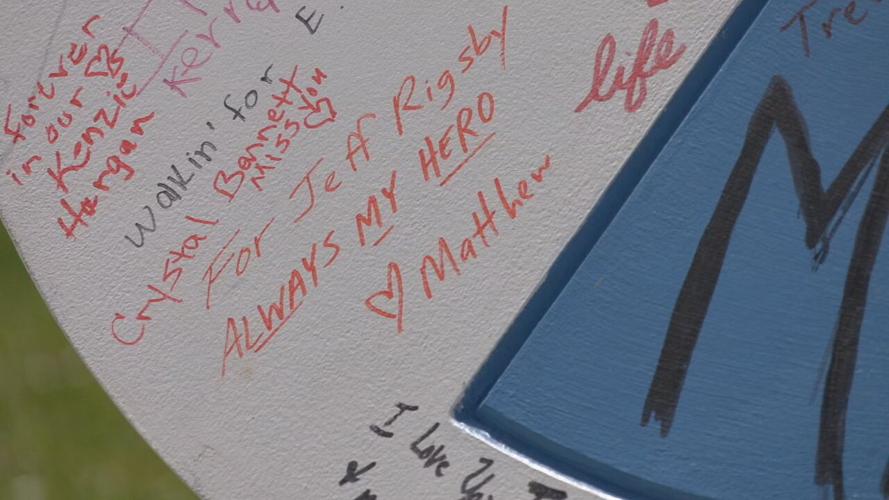 Forever
in our
Kenzie
Hargan
Kerra
Walkin' for
E.
Crystal Bannett
Miss You
For Jeff Rigsby
ALWAYS MY HERO
Matthew
life
Tre
M
I Love You